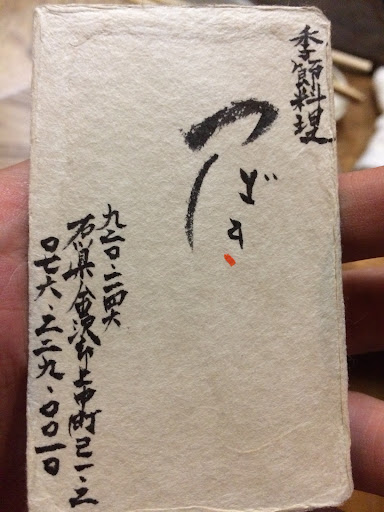 季節料理
つばき
九二〇・二四六
石川県金沢市上中町
〇七六・二二九・〇〇一〇